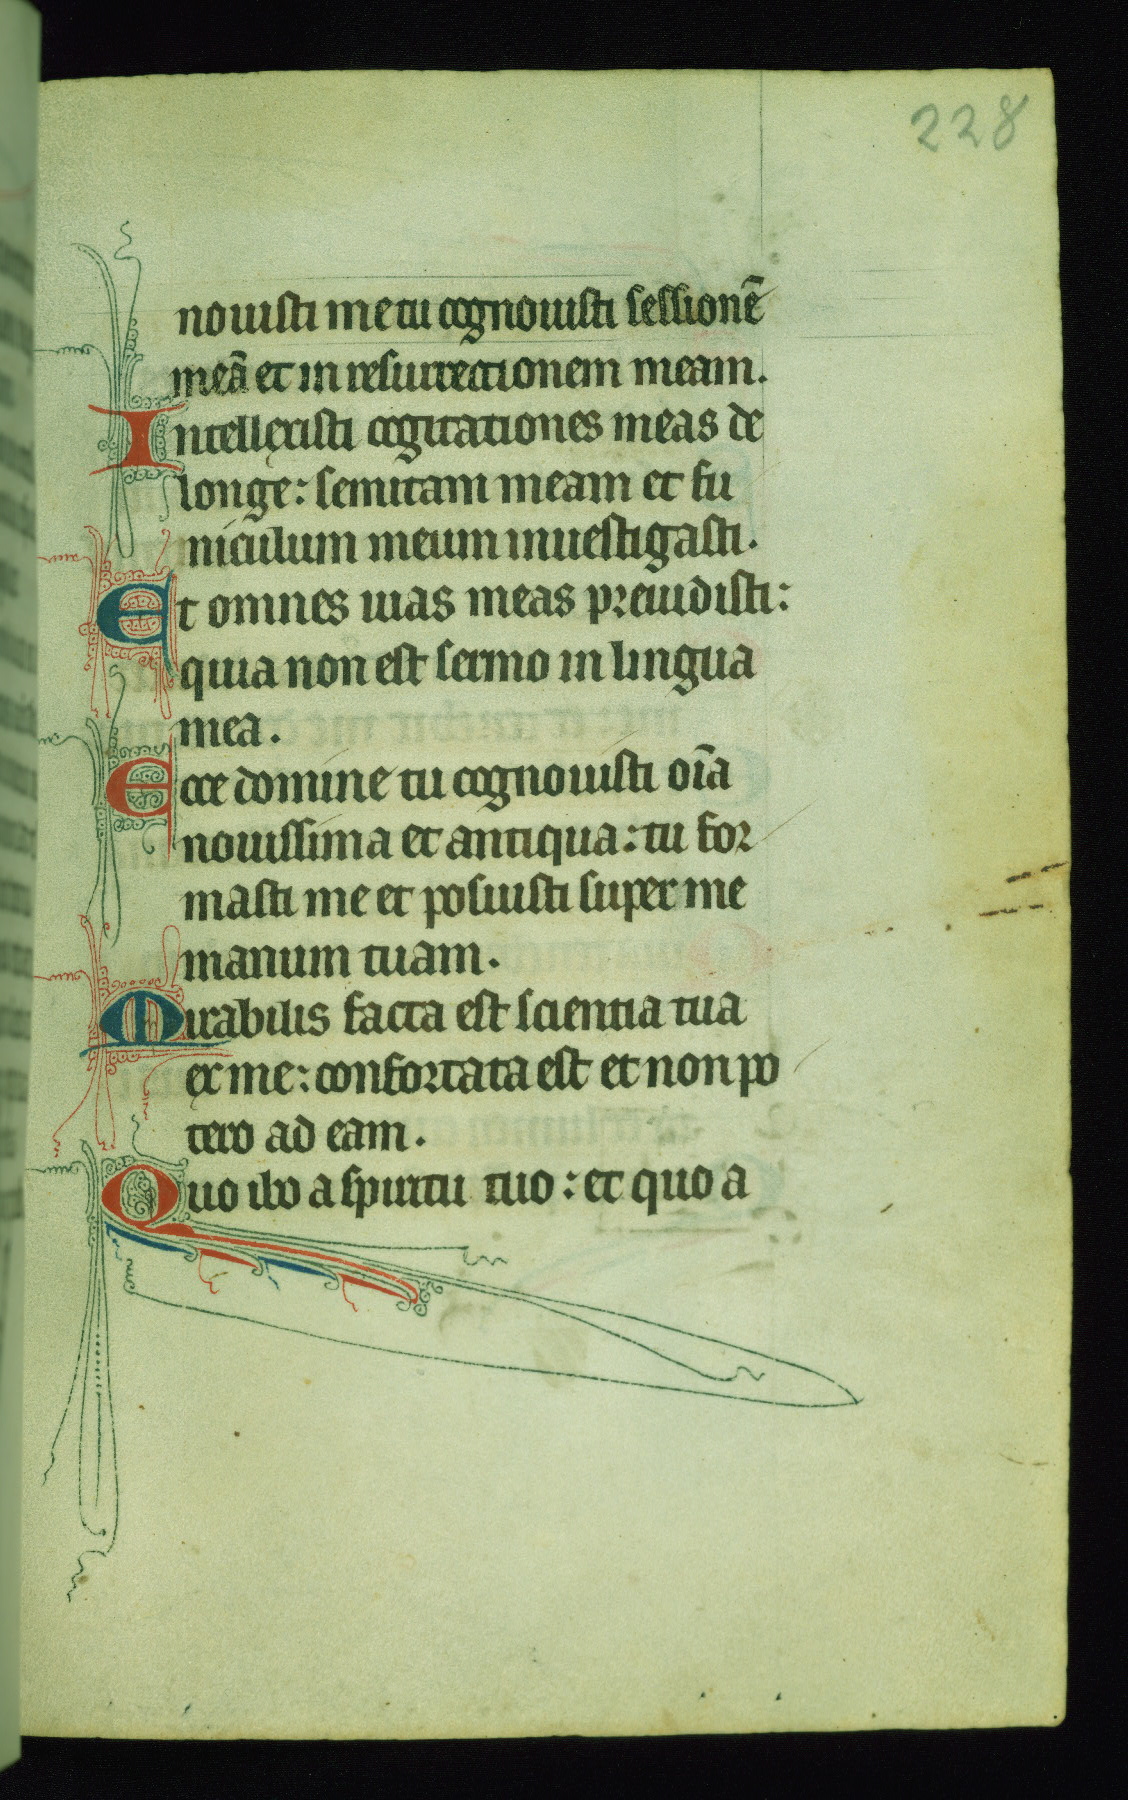 228
nouisti me tu cognouisti sessionē
meā et in resurrectionem meam.
Intellexisti cogitationes meas de
longe: semitam meam et fu
niculum meum inuestigasti.
Et omnes uias meas preuidisti:
quia non est sermo in lingua
mea.
Ecce domine tu cognouisti oīa
nouissima et antiqua: tu for
masti me et posuisti super me
manum tuam.
Mirabilis facta est scientia tua
ex me: confortata est et non po
tero ad eam.
Quo ibo a spiritu tuo: et quo a